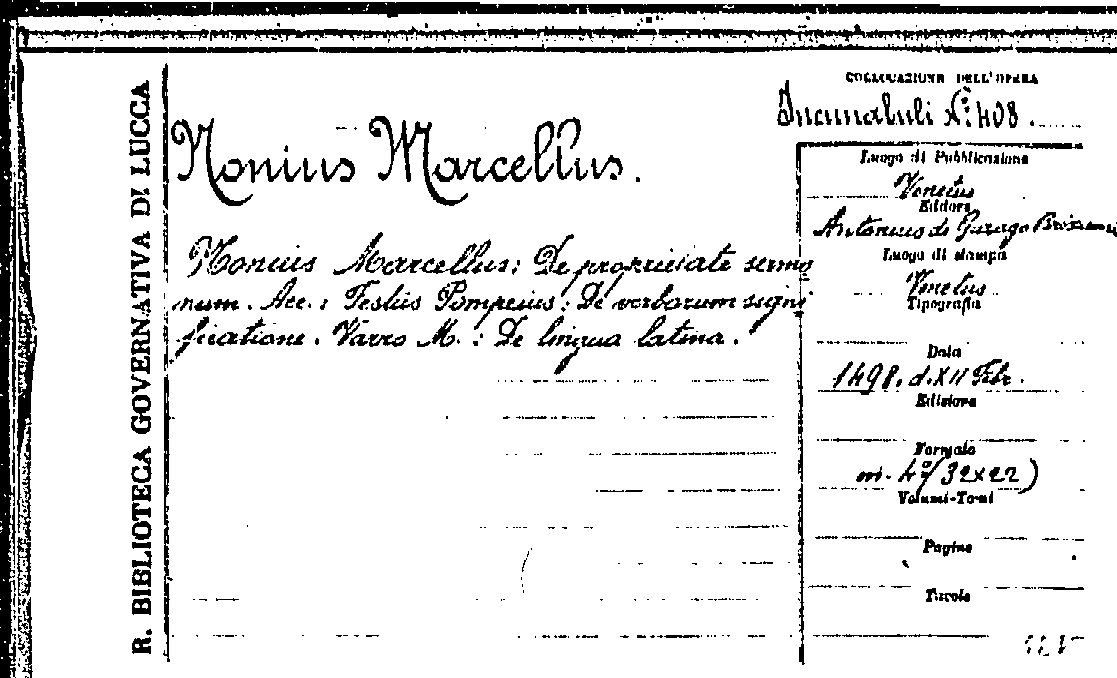 R. BIBLIOTECA GOVERNATIVA DI LUCCA
Nonius Marcellus.
Nonius Marcellus: De proprietate sermo
num. Acc.: Festus Pompeius: De verborum signi
ficatione. Varro M.: De lingua latina.
COLLOCAZIONE DELL'OPERA
Incunabuli N.º 408.
Luogo di Pubblicazione
Venetus
Editore
Antonius de Gusago
Luogo di stampa
Venetus
Tipografia
Data
1498. d. XII Febr.
Edizione
Formato
m. 4º (32x22)
Volumi-Tomi
Pagine
Tavole